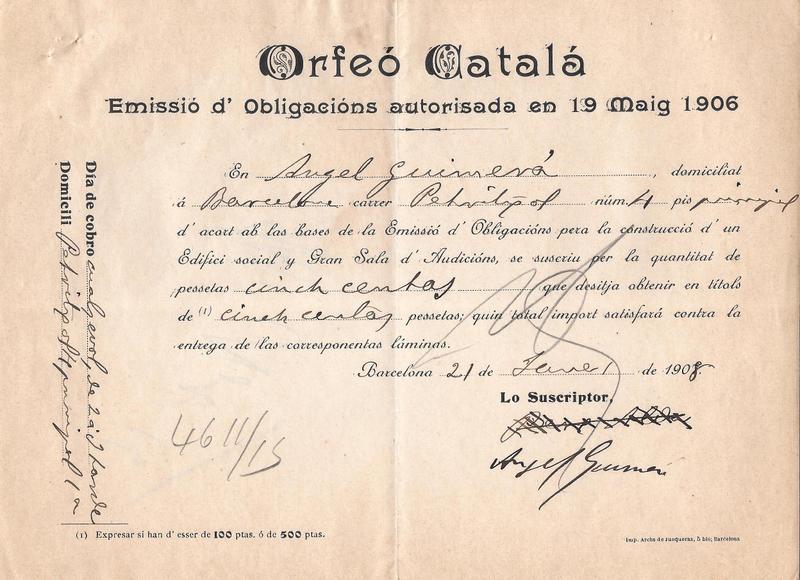 Orfeó Catalá
Emissió d' Obligacións autorisada en 19 Maig 1906
En Angel Guimerá, domiciliat
á Barcelona carrer Petritxol núm. 4 pis principal
d' acort ab las bases de la Emissió d' Obligacións pera la construcció d' un
Edifici social y Gran Sala d' Audicións, se suscriu per la quantitat de
pessetas cinch centas que desitja obtenir en títols
de (1) cinch centas pessetas; quin total import satisfará contra la
entrega de las corresponentas láminas.
Barcelona 21 de Janer de 1908.
Lo Suscriptor,
Angel Guimerá
4611/15
Día de cobro qualsevol, de 2 a 3 tarde
Domicili Petritxol 4 principal 1a
(1) Expresar si han d' esser de 100 ptas. ó de 500 ptas.
Imp. Archs de Junqueras, 5 bis; Barcelona